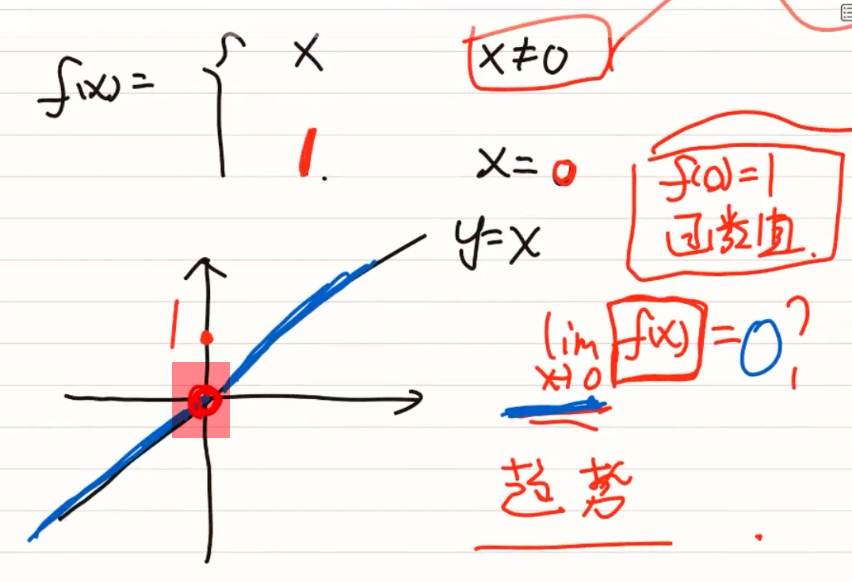 f(x) = { x x≠0
1. x=0
f(0)=1
函数值.
y=x
1
lim f(x) = 0?
x→0
趋势